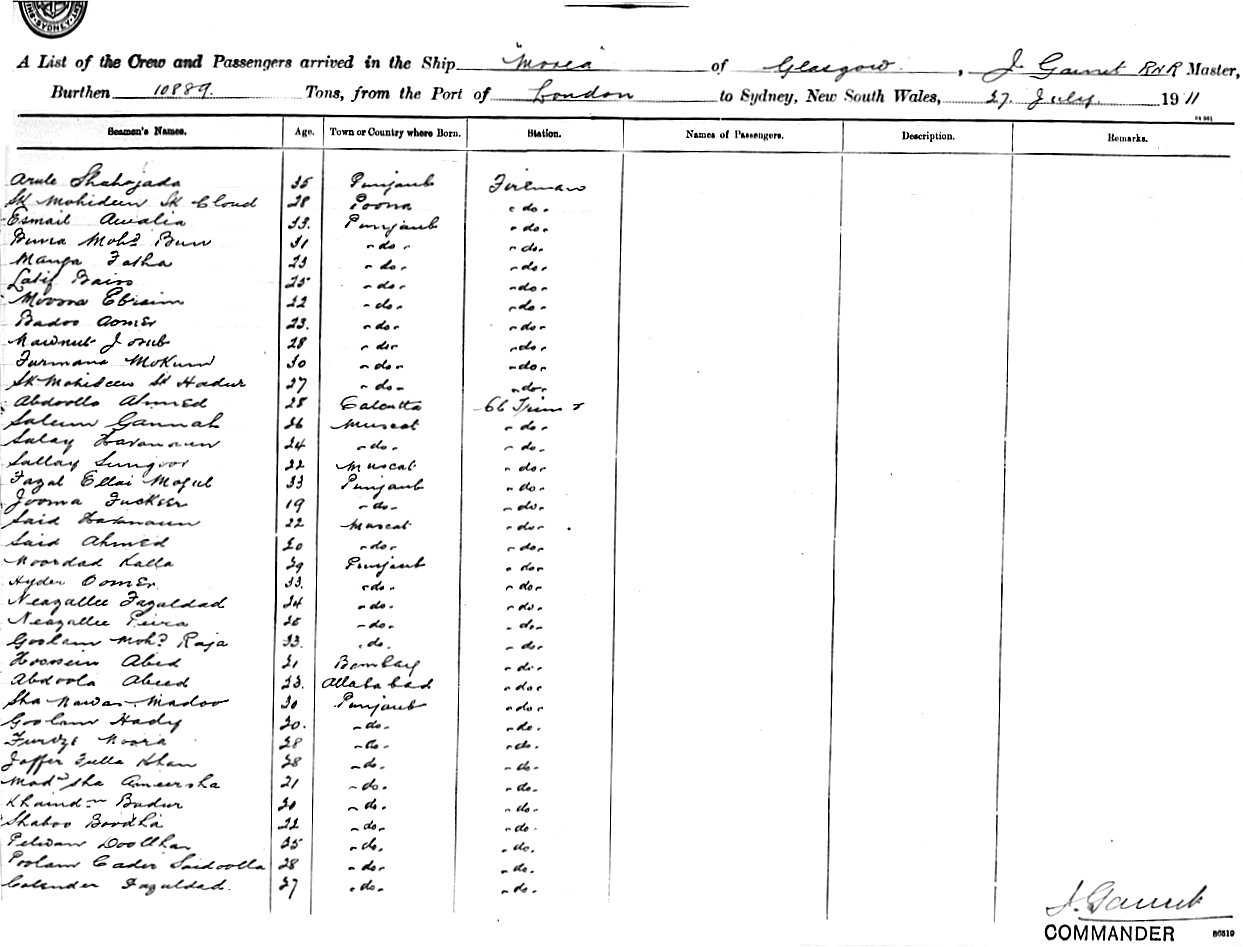 SYDNEY
A List of the Crew and Passengers arrived in the Ship "Morea" of Glasgow, J. RNR Master,
Burthen 10889. Tons, from the Port of London to Sydney, New South Wales, 27. July. 1911
Seamen's Names. Age. Town or Country where Born. Station. Names of Passengers. Description. Remarks.
Shahajada 35 Punjaub Fireman
Sk Mohideen Sk Cloud 28 Poona " do "
Esmail Awalia 33. Punjaub " do "
Moh? Burr 31 " do " " do "
Manga Fatha 23 " do " " do "
Latif 25 " do " " do "
Moosa Ebraim 22 " do " " do "
Badoo Oomer 23. " do " " do "
28 " do " " do "
Furmana Mokum 30 " do " " do "
Sk Mohideen Sk Hadur 27 " do " " do "
Abdoolla Ahmed 28 Calcutta
Saleem Gannah 26 Muscat " do "
Salay 24 " do " " do "
Sallay Sungoor 22 Muscat " do "
Fazal Ellai Mogul 33 Punjaub " do "
Jooma Fuckeer 19 " do " " do "
Said 22 Muscat " do "
Said Ahmed 20 " do " " do "
Noordad Kalla 29 Punjaub " do "
Hyder Oomer. 33. " do " " do "
Neazallee Fazuldad 24 " do " " do "
Neazallee Peira 25 " do " " do "
Goolam Mohd Raja 33. " do " " do "
Hoosein Abed 21 Bombay " do "
Abdoola Abeed 23. Allahabad " do "
Sha Nawas Madoo 30 Punjaub " do "
Goolam Hady 20. " do " " do "
Noora 28 " do " " do "
Jaffer Fulla Khan 28 " do " " do "
Sha Ameersha 21 " do " " do "
Budur 20 " do " " do "
Shaboo Boodha 22 " do " " do "
Pelwan Doolkhan 35 " do " " do "
Goolam Cader Saidoolla 28 " do " " do "
Calender Fazuldad. 27 " do " " do "
COMMANDER